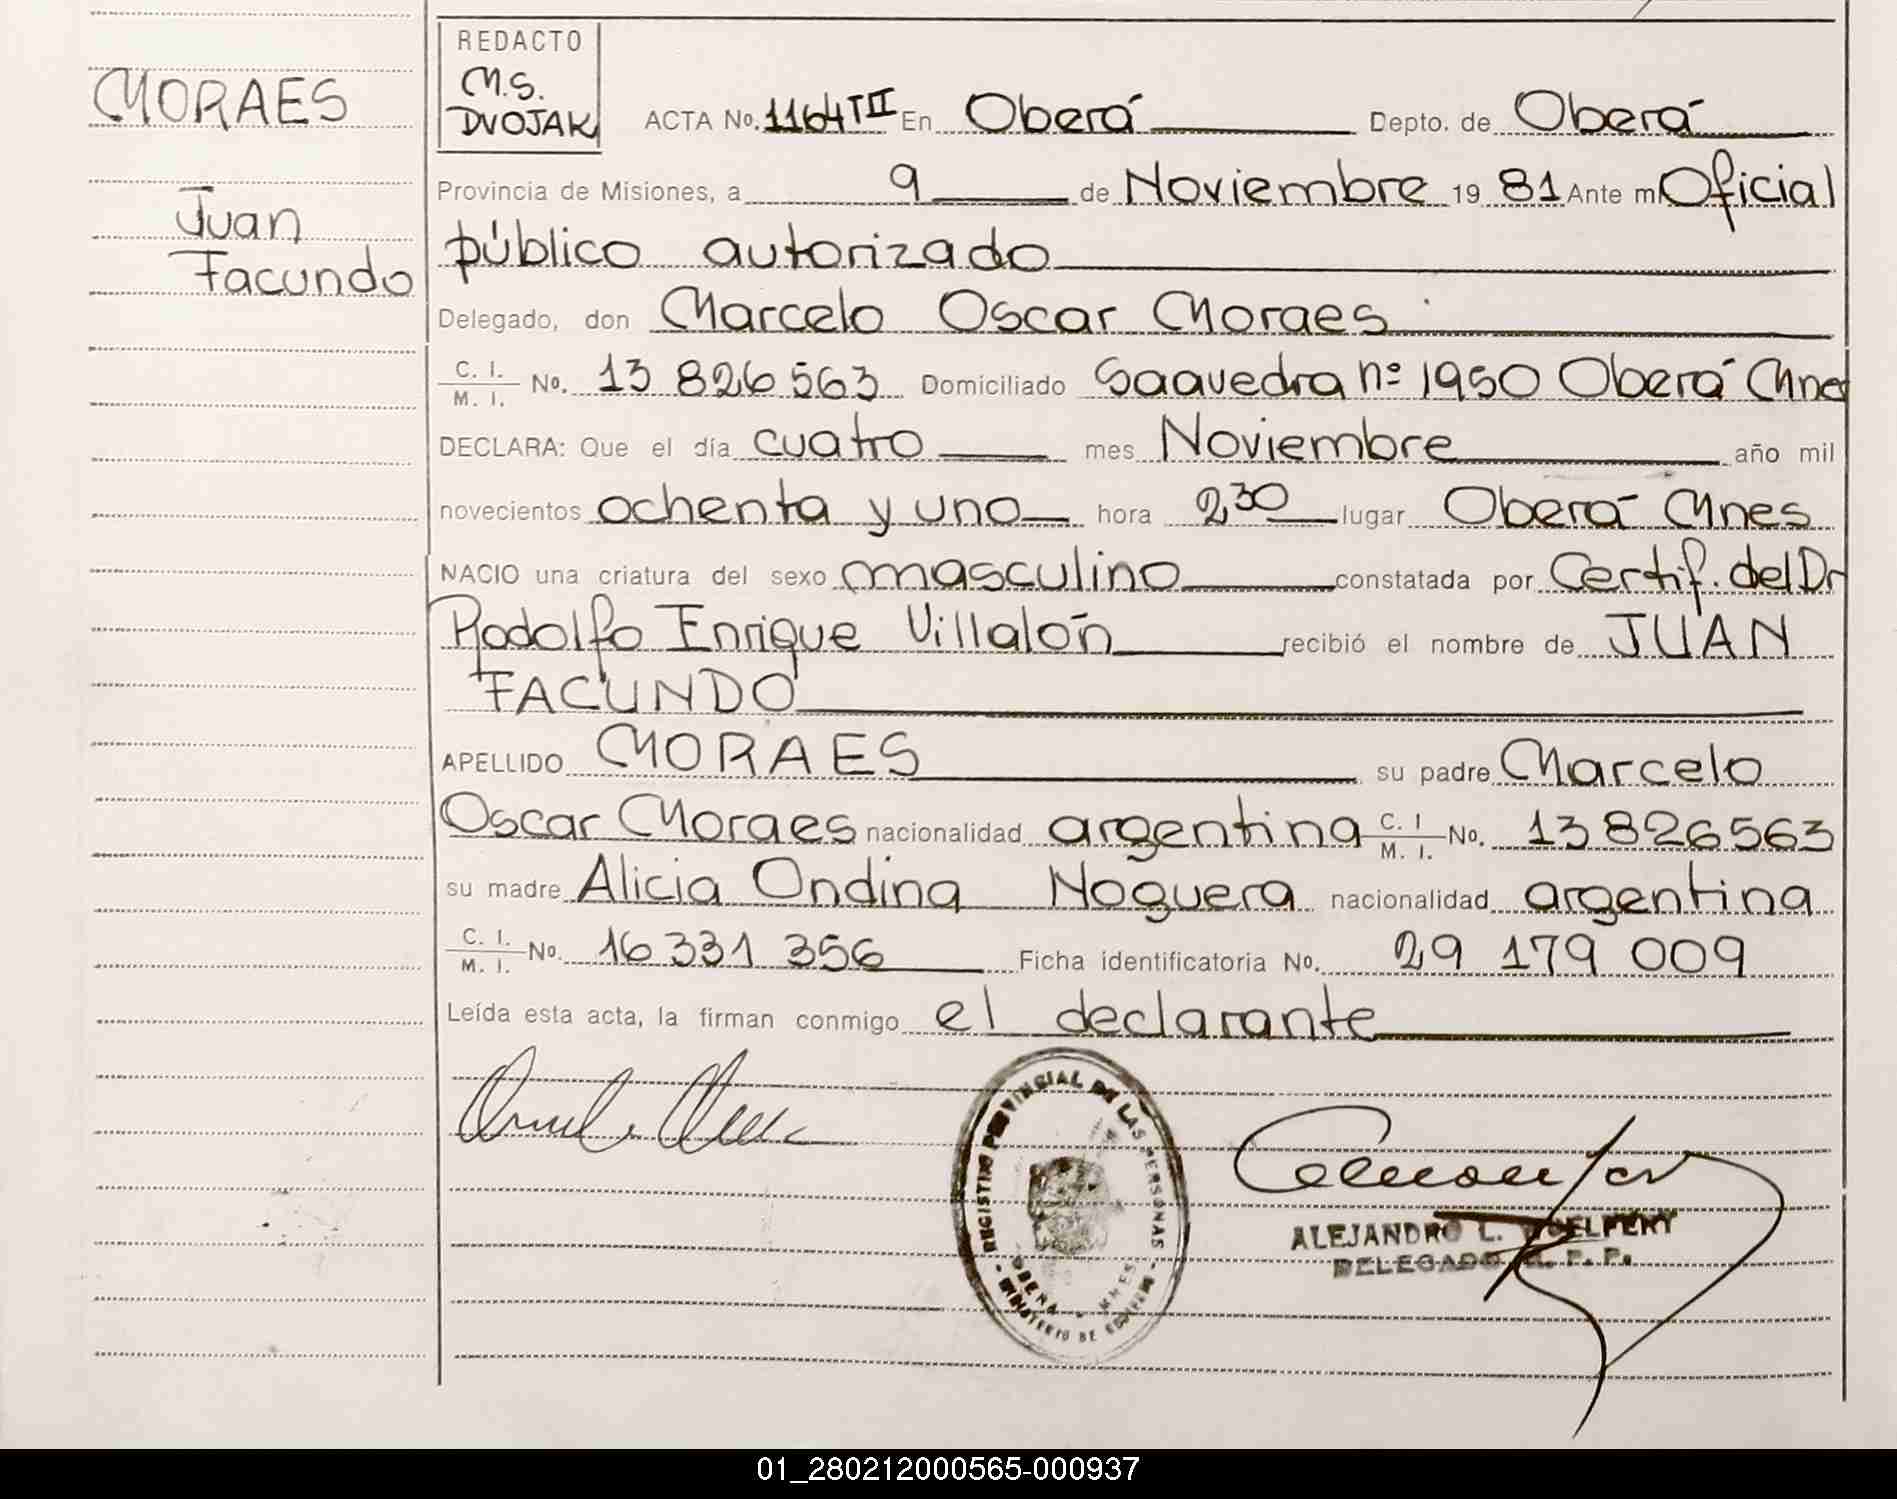 MORAES
Juan
Facundo
REDACTO
M.S.
DVOJAK
ACTA No. 1164 TIII En Oberá Depto. de Oberá
Provincia de Misiones, a 9 de Noviembre 19 81 Ante mi Oficial
público autorizado
Delegado, don Marcelo Oscar Moraes
C. I. M. I. No. 13 826 563 Domiciliado Saavedra nº 1950 Oberá Mnes
DECLARA: Que el día cuatro mes Noviembre año mil
novecientos ochenta y uno hora 2 30 lugar Oberá Mnes
NACIO una criatura del sexo masculino constatada por Certif. del Dr
Rodolfo Enrique Villalón recibió el nombre de JUAN
FACUNDO
APELLIDO MORAES su padre Marcelo
Oscar Moraes nacionalidad argentina C. I M. I. No. 13 826 563
su madre Alicia Ondina Noguera nacionalidad argentina
C. I. M. I. No. 16 331 356 Ficha identificatoria No. 29 179 009
Leída esta acta, la firman conmigo el declarante
REGISTRO PROVINCIAL DE LAS PERSONAS
OBERA - MNES
MINISTERIO DE
ALEJANDRO L.
DELEGADO R. P. P.
01_280212000565-000937